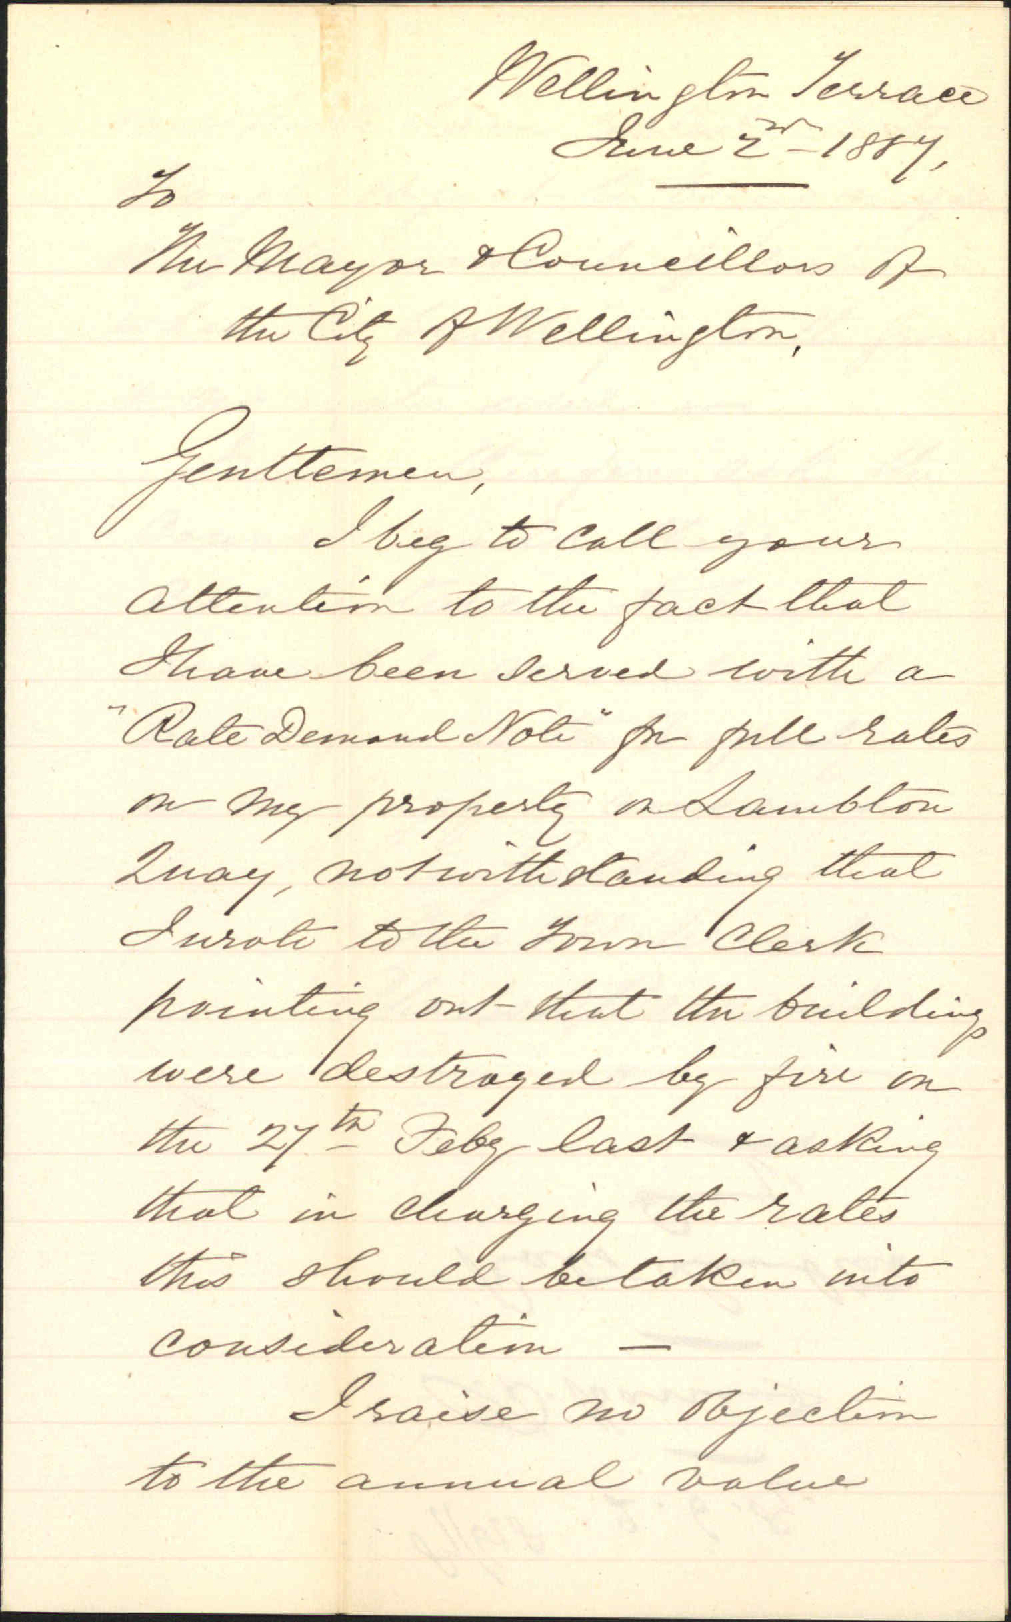 Wellington Terrace
June 2nd 1887,
To
The Mayor & Councillors of
the City of Wellington,
Gentlemen,
I beg to call your
attention to the fact that
I have been served with a
"Rate Demand Note" for full rates
on my property on Lambton
Quay, notwithstanding that
I wrote to the Town Clerk
pointing out that the buildings
were destroyed by fire on
the 27th Feby last & asking
that in charging the rates
this should be taken into
consideration —
I raise no objection
to the annual value